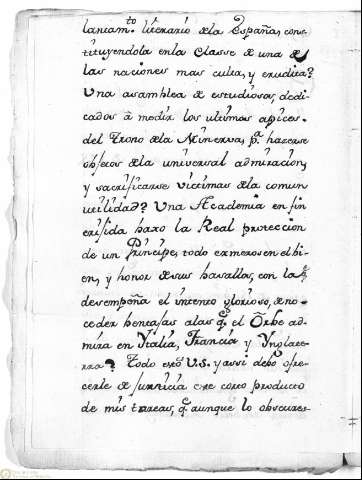 lantam.to literario de la España, cons-
tituyendola en la Classe de una de
las naciones mas culta, y erudita?
Una asamblea de estudiosos, dedi-
cados à medir los ultimos apices
del Trono de la Minerva, p.a hazerse
objetos de la universal admiracion,
y sacrificarse victimas de la comun
utilidad? Una Academia en fin
erijida baxo la Real proteccion
de un Príncipe, todo esmeros en el bi-
en, y honor de sus basallos, con la q.e
desempeña el intento glorioso, de no
ceder bentajas a las q.e el Orbe ad-
mira en Italia, Francia y Ynglate-
rra? Todo esto U.S. y assi debo ofre-
cerle de justicia este corto producto
de mis tareas, q.e aunque lo obscures-